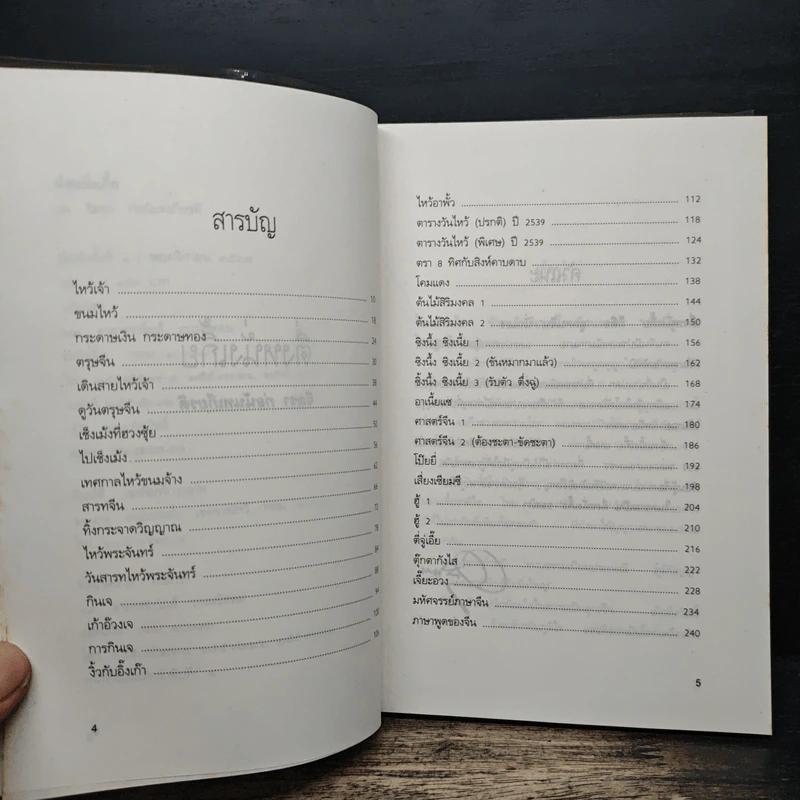 สารบัญ
ไหว้เจ้า 10
ขนมไหว้ 18
กระดาษเงิน กระดาษทอง 24
ตรุษจีน 30
เดินสายไหว้เจ้า 38
ดูวันตรุษจีน 44
เช็งเม้งที่ฮวงซุ้ย 50
ไปเช็งเม้ง 56
เทศกาลไหว้ขนมจ้าง 62
สารทจีน 66
ทิ้งกระจาดวิญญาณ 72
ไหว้พระจันทร์ 78
วันสารทไหว้พระจันทร์ 84
กินเจ 88
เก้าอ๊วงเจ 94
การกินเจ 100
งิ้วกับอิ๊งเก๊า 106
4
ไหว้อาพั้ว 112
ตารางวันไหว้ (ปรกติ) ปี 2539 118
ตารางวันไหว้ (พิเศษ) ปี 2539 124
ตรา 8 ทิศกับสิงห์คาบดาบ 132
โคมแดง 138
ต้นไม้สิริมงคล 1 144
ต้นไม้สิริมงคล 2 150
ซิงนิ้ง ซิงเนี้ย 1 156
ซิงนิ้ง ซิงเนี้ย 2 (ขันหมากมาแล้ว) 162
ซิ้งนิ้ง ซิงเนี้ย 3 (รับตัว ตึ่งฉู่) 168
อาเนี้ยแซ 174
ศาสตร์จีน 1 180
ศาสตร์จีน 2 (ต้องชะตา-ขัดชะตา) 186
โป๊ยยี่ 192
เสี่ยงเซียมซี 198
ฮู้ 1 204
ฮู้ 2 210
ตี่จู่เอี๊ย 216
ตุ๊กตากังไส 222
เจี๊ยะอวง 228
มหัศจรรย์ภาษาจีน 234
ภาษาพูดของจีน 240
5